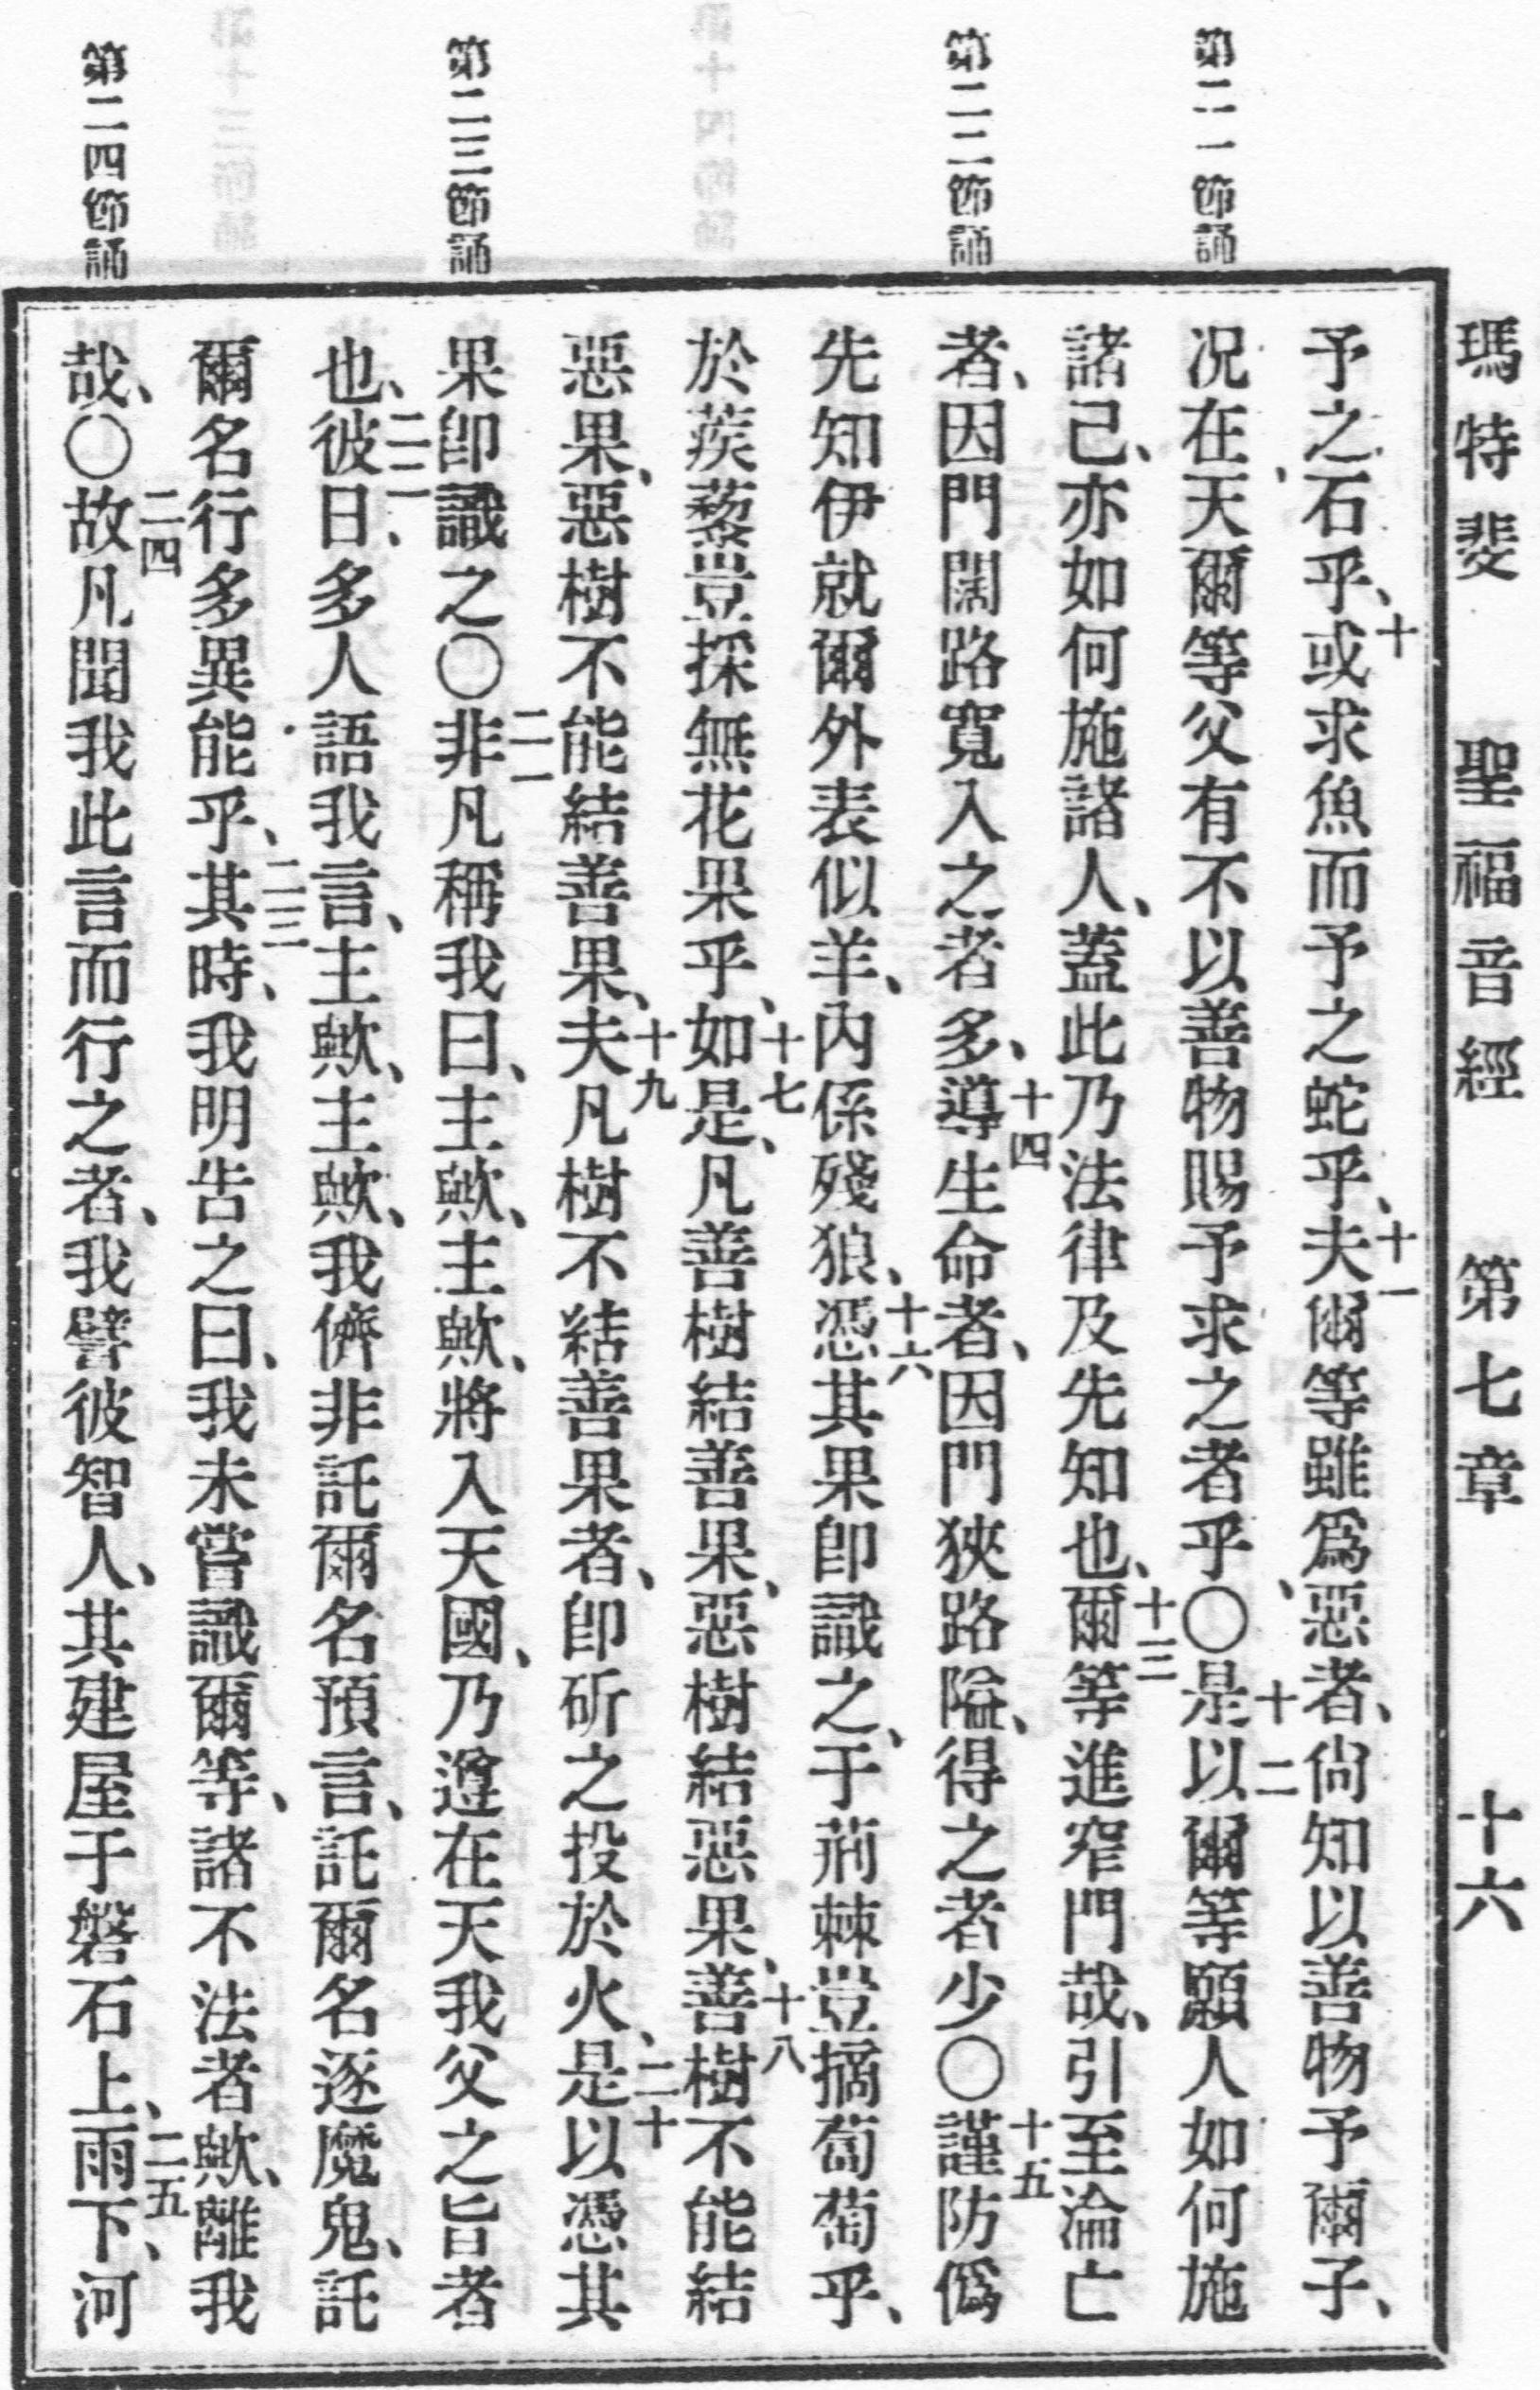 瑪特斐 聖福音經 第七章 十六
第二一節誦
第二二節誦
第二三節誦
第二四節誦
予之石乎、十或求魚而予之蛇乎、十一夫爾等雖爲惡者、尙知以善物予爾子、
况在天爾等父有不以善物賜予求之者乎、〇十二是以爾等願人如何施
諸己、亦如何施諸人、蓋此乃法律及先知也、十三爾等進窄門哉、引至淪亡
者、因門闊路寬入之者多、十四導生命者、因門狹路隘、得之者少〇十五謹防僞
先知伊就爾外表似羊、內係殘狼、十六憑其果卽識之、于荊棘豈摘萄萄乎、
於蒺藜豈採無花果乎、十七如是、凡善樹結善果、惡樹結惡果、十八善樹不能結
惡果、惡樹不能結善果、十九夫凡樹不結善果者、卽斫之投於火、二十是以憑其
果卽識之〇二一非凡稱我曰、主歟、主歟、將入天國、乃遵在天我父之旨者
也、二二彼日、多人語我言、主歟、主歟、我儕非託爾名預言、託爾名逐魔鬼、託
爾名行多異能乎、二三其時、我明告之曰、我未嘗識爾等、諸不法者歟、離我
哉、〇二四故凡聞我此言而行之者、我譬彼智人、其建屋于磐石上、二五雨下、河